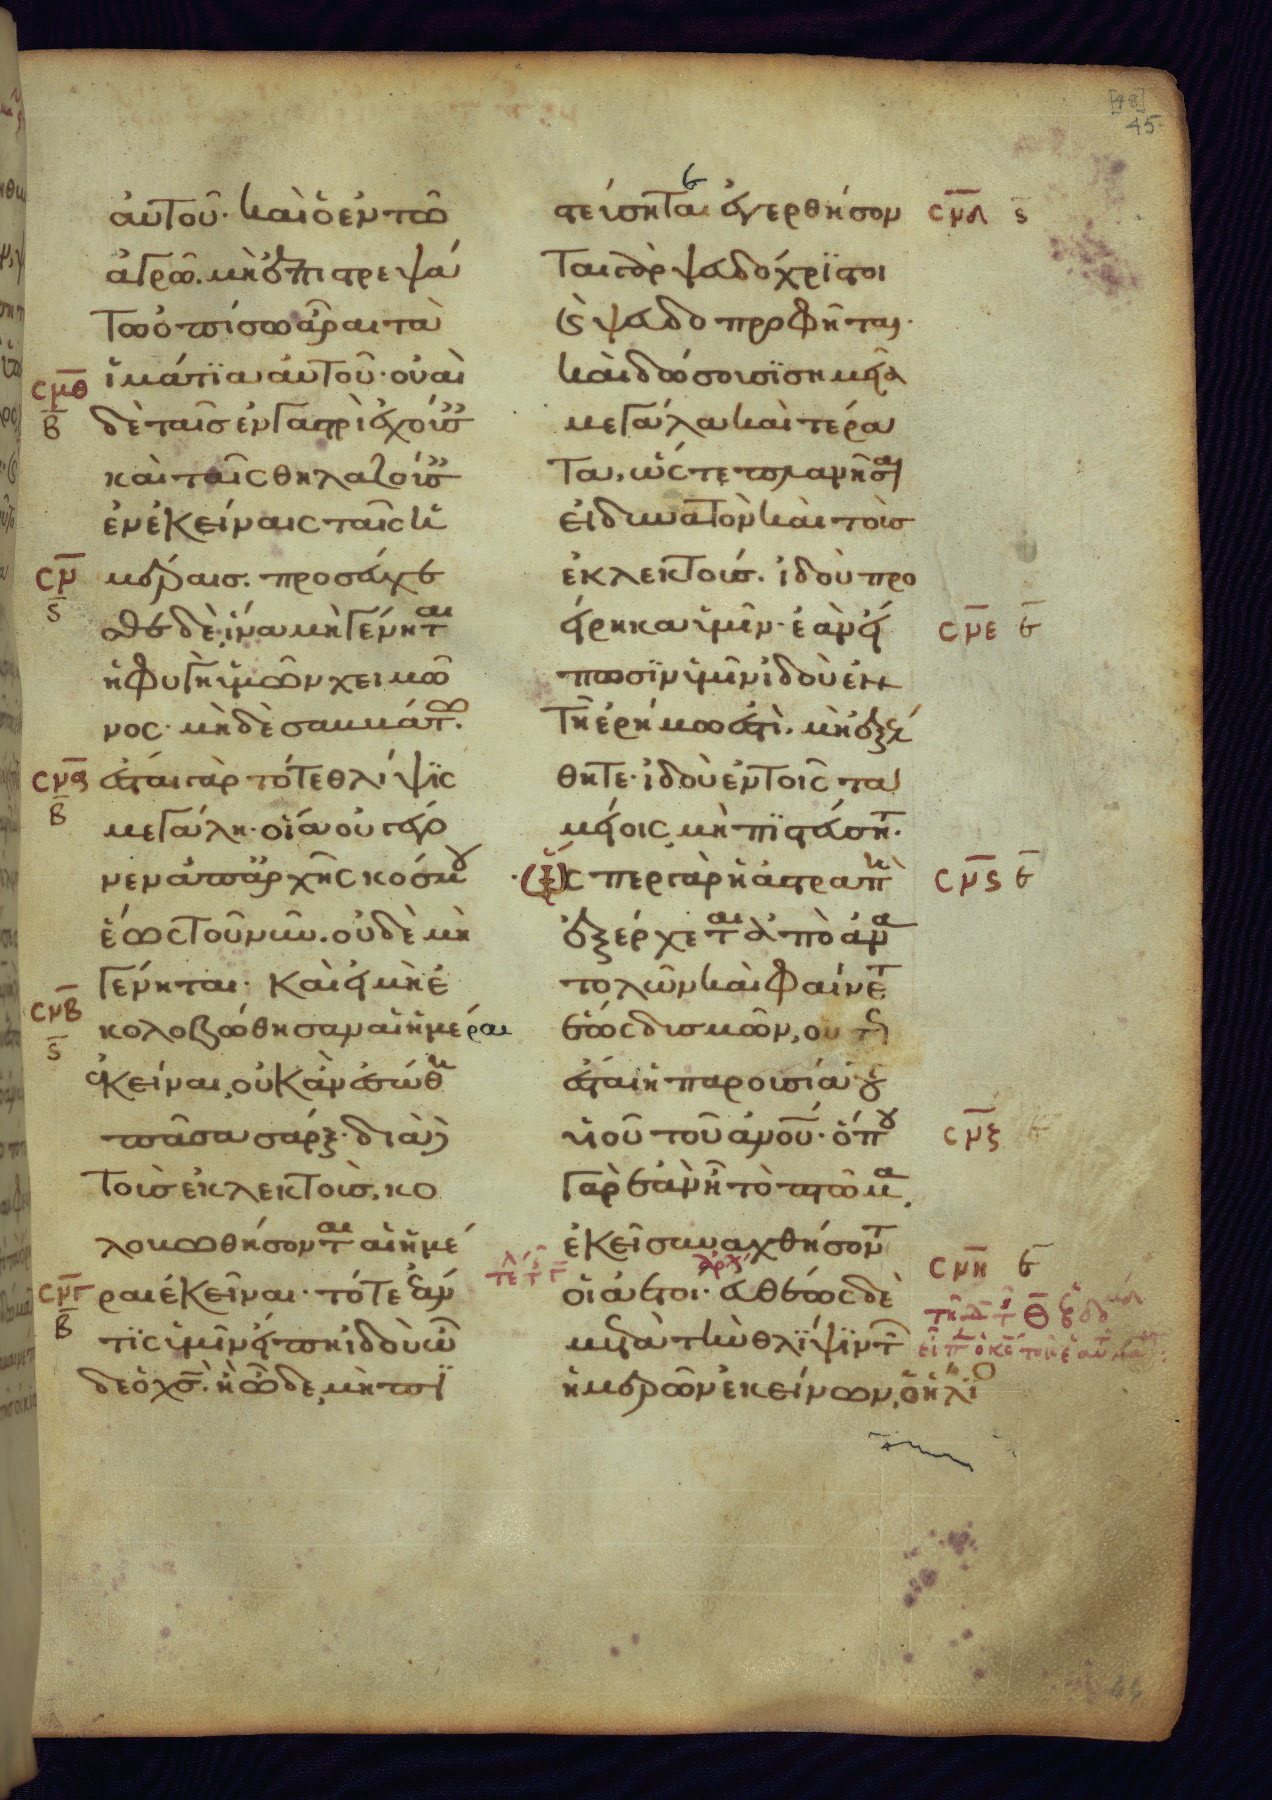 [48]
45
αὐτοῦ· καὶ ὁ ἐν τῶ
ἀγρῶ. μὴ ἐπιστρεψά
τω ὀπίσω ἆραι τὰ
ἱμάτϊα αὐτοῦ· οὐαὶ
σμθ
β
δὲ ταῖσ ἐν γαστρὶ ἐχούσ
καὶ ταῖς θηλαζούσ
ἐν ἐκείναις ταῖς ἡ
σν
ς
μέραισ. προσεύχε
σθε δὲ, ἵνα μὴ γένητ(αι)
ἡ φυγὴ ὑμῶν χειμῶ
νος· μὴδὲ σαββάτω.
σνα
β
ἔσται γὰρ τότε θλίψϊς
μεγάλη· οἵα οὐ γέγο
νεν ἀπ' ἀρχῆς κόσμου
ἕως τοῦ νῦν. οὐδὲ μὴ
γένηται· καὶ εἰ μὴ ἐ
σνβ
ς
κολοβώθησαν αἱ ἡμέραι
ἐκεῖναι, οὐκ ἂν ἐσώθη
πᾶσα σάρξ· διὰ δὲ
τοὺσ ἐκλεκτοὺσ, κο
λοβωθήσονται αἱ ἡμέ
σνγ
β
ραι ἐκεῖναι· τότε ἐάν
τϊς ὑμῖν εἴπη ἰδοὺ ὧ
δε ὁ χσ. ἢ ὧδε, μὴ πϊ
στεύσηται ἐγερθήσον
σνδ ς
ται γὰρ ψευδόχρϊστοι
(καὶ) ψευδοπροφῆται·
καὶ δώσουσϊ σημεῖα
μεγάλα καὶ τέρα
τα, ὥστε πλανῆσαι
εἰ δυνατὸν καὶ τοὺσ
ἐκλεκτούσ. ἰδοὺ προ
είρηκα ὑμῖν· ἐὰν εἴ
σνε ε
πωσϊν ὑμῖν ἰδοὺ ἐν
τῆ ἐρήμω ἐστὶ. μὴ ἐξέλ
θητε· ἰδοὺ ἐν τοῖς τα
μείοις μὴ πϊστεύσητ·
ὥσπερ γὰρ ἡ ἀστραπὴ
σνς ε
ἐξέρχεται ἀπὸ ἀνα
τολῶν καὶ φαίνετ
ἕως δυσμῶν, οὕτ
ἔσται ἡ παρουσία τοῦ
υἱοῦ τοῦ ἀνου· ὅπου
σνζ ε
γὰρ ἐὰν ἦ τὸ πτῶμα,
ἐκεῖ συναχθήσοντ
οἱ ἀετοί· εὐθέως δὲ
σνη ε
μετὰ τὴν θλϊψϊν τ
ἡμερῶν ἐκείνων, ὁ ἥλιο